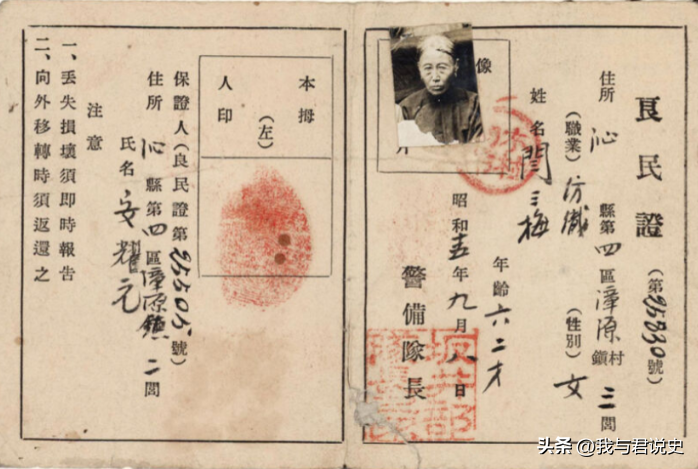 良民證
(第25830號)
住所 沁縣第四區漳源村鎮三閭
(職業)紡織
(性別)女
姓名 閆三梅
年齡 六二才
像片
昭和十五年九月八日
警備隊長
本人
拇印
(左)
保證人(良民證第25505號)
住所 沁縣第四區漳源鎮二閭
氏名 安耀元
注意
一、丟失損壞須即時報告
二、向外移轉時須返還之
头条 @我与君说史